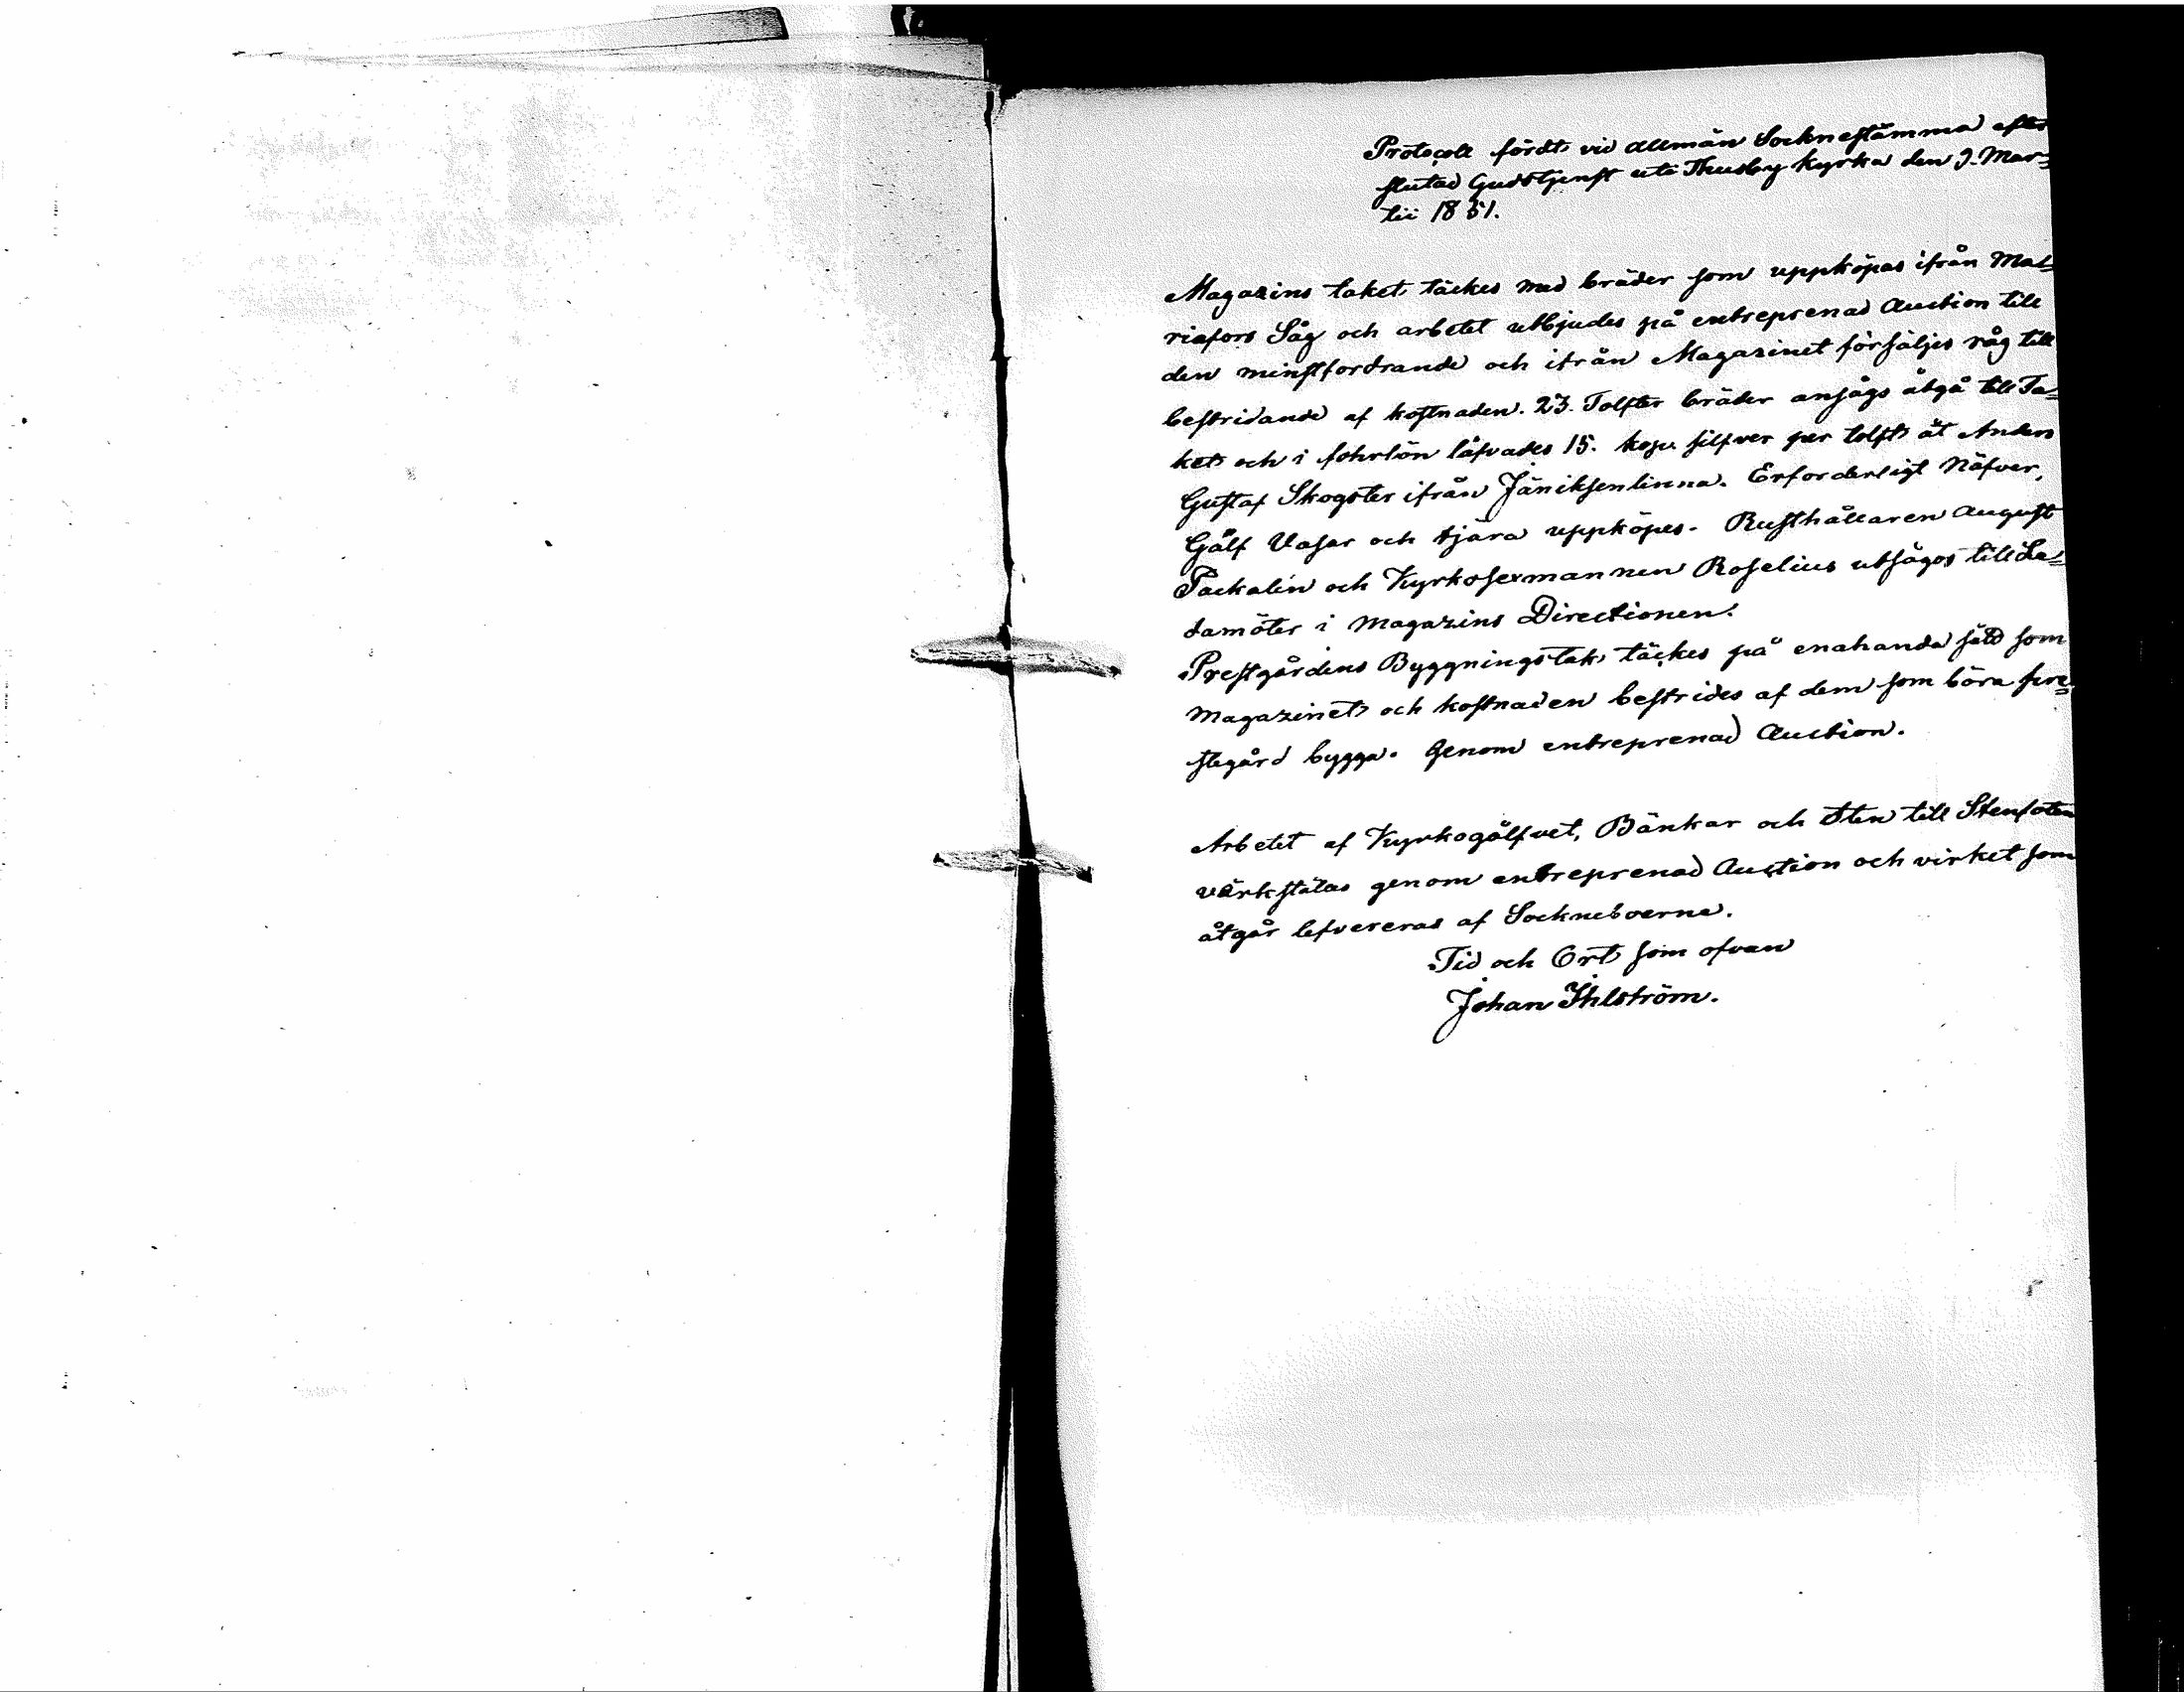 Protocoll fördt vid allmän Socknestämma efter
slutad Gudstjenst uti Thusby kyrka den 9. Mar=
tii 1851.
Magazins taket täckes med bräder som uppköpas ifrån Mat=
riafors Såg och arbetet utbjudes på entreprenad Auction till
den minstfordrande och ifrån Magazinet försäljes råg till
bestridande af kostnaden. 23. Tolfter bräder ansågs åtgå till Ta=
ket och i fohrlön låfvades 15. kop. silfver per tolft åt Anders
Gustaf Skogster ifrån Jäniksenlinna. Erforderligt Näfver,
Gålf Vasar och tjära uppköpes. Rusthållaren August
Tackalin och Kyrkosexmannen Roselius utsågos till Le=
damöter i Magazins Directionen.
Prestgårdens Byggningstak täckes på enahanda sätt som
Magazinet och kostnaden bestrides af dem som böra pre=
stegård bygga. Genom entreprenad Auction.
Arbetet af Kyrkogålfvet, Bänkar och Sten till Stenfoten
värkstälas genom entreprenad Auction och virket som
åtgår lefvereras af Sockneboerne.
Tid och Ort som ofvan
Johan Ihlström.